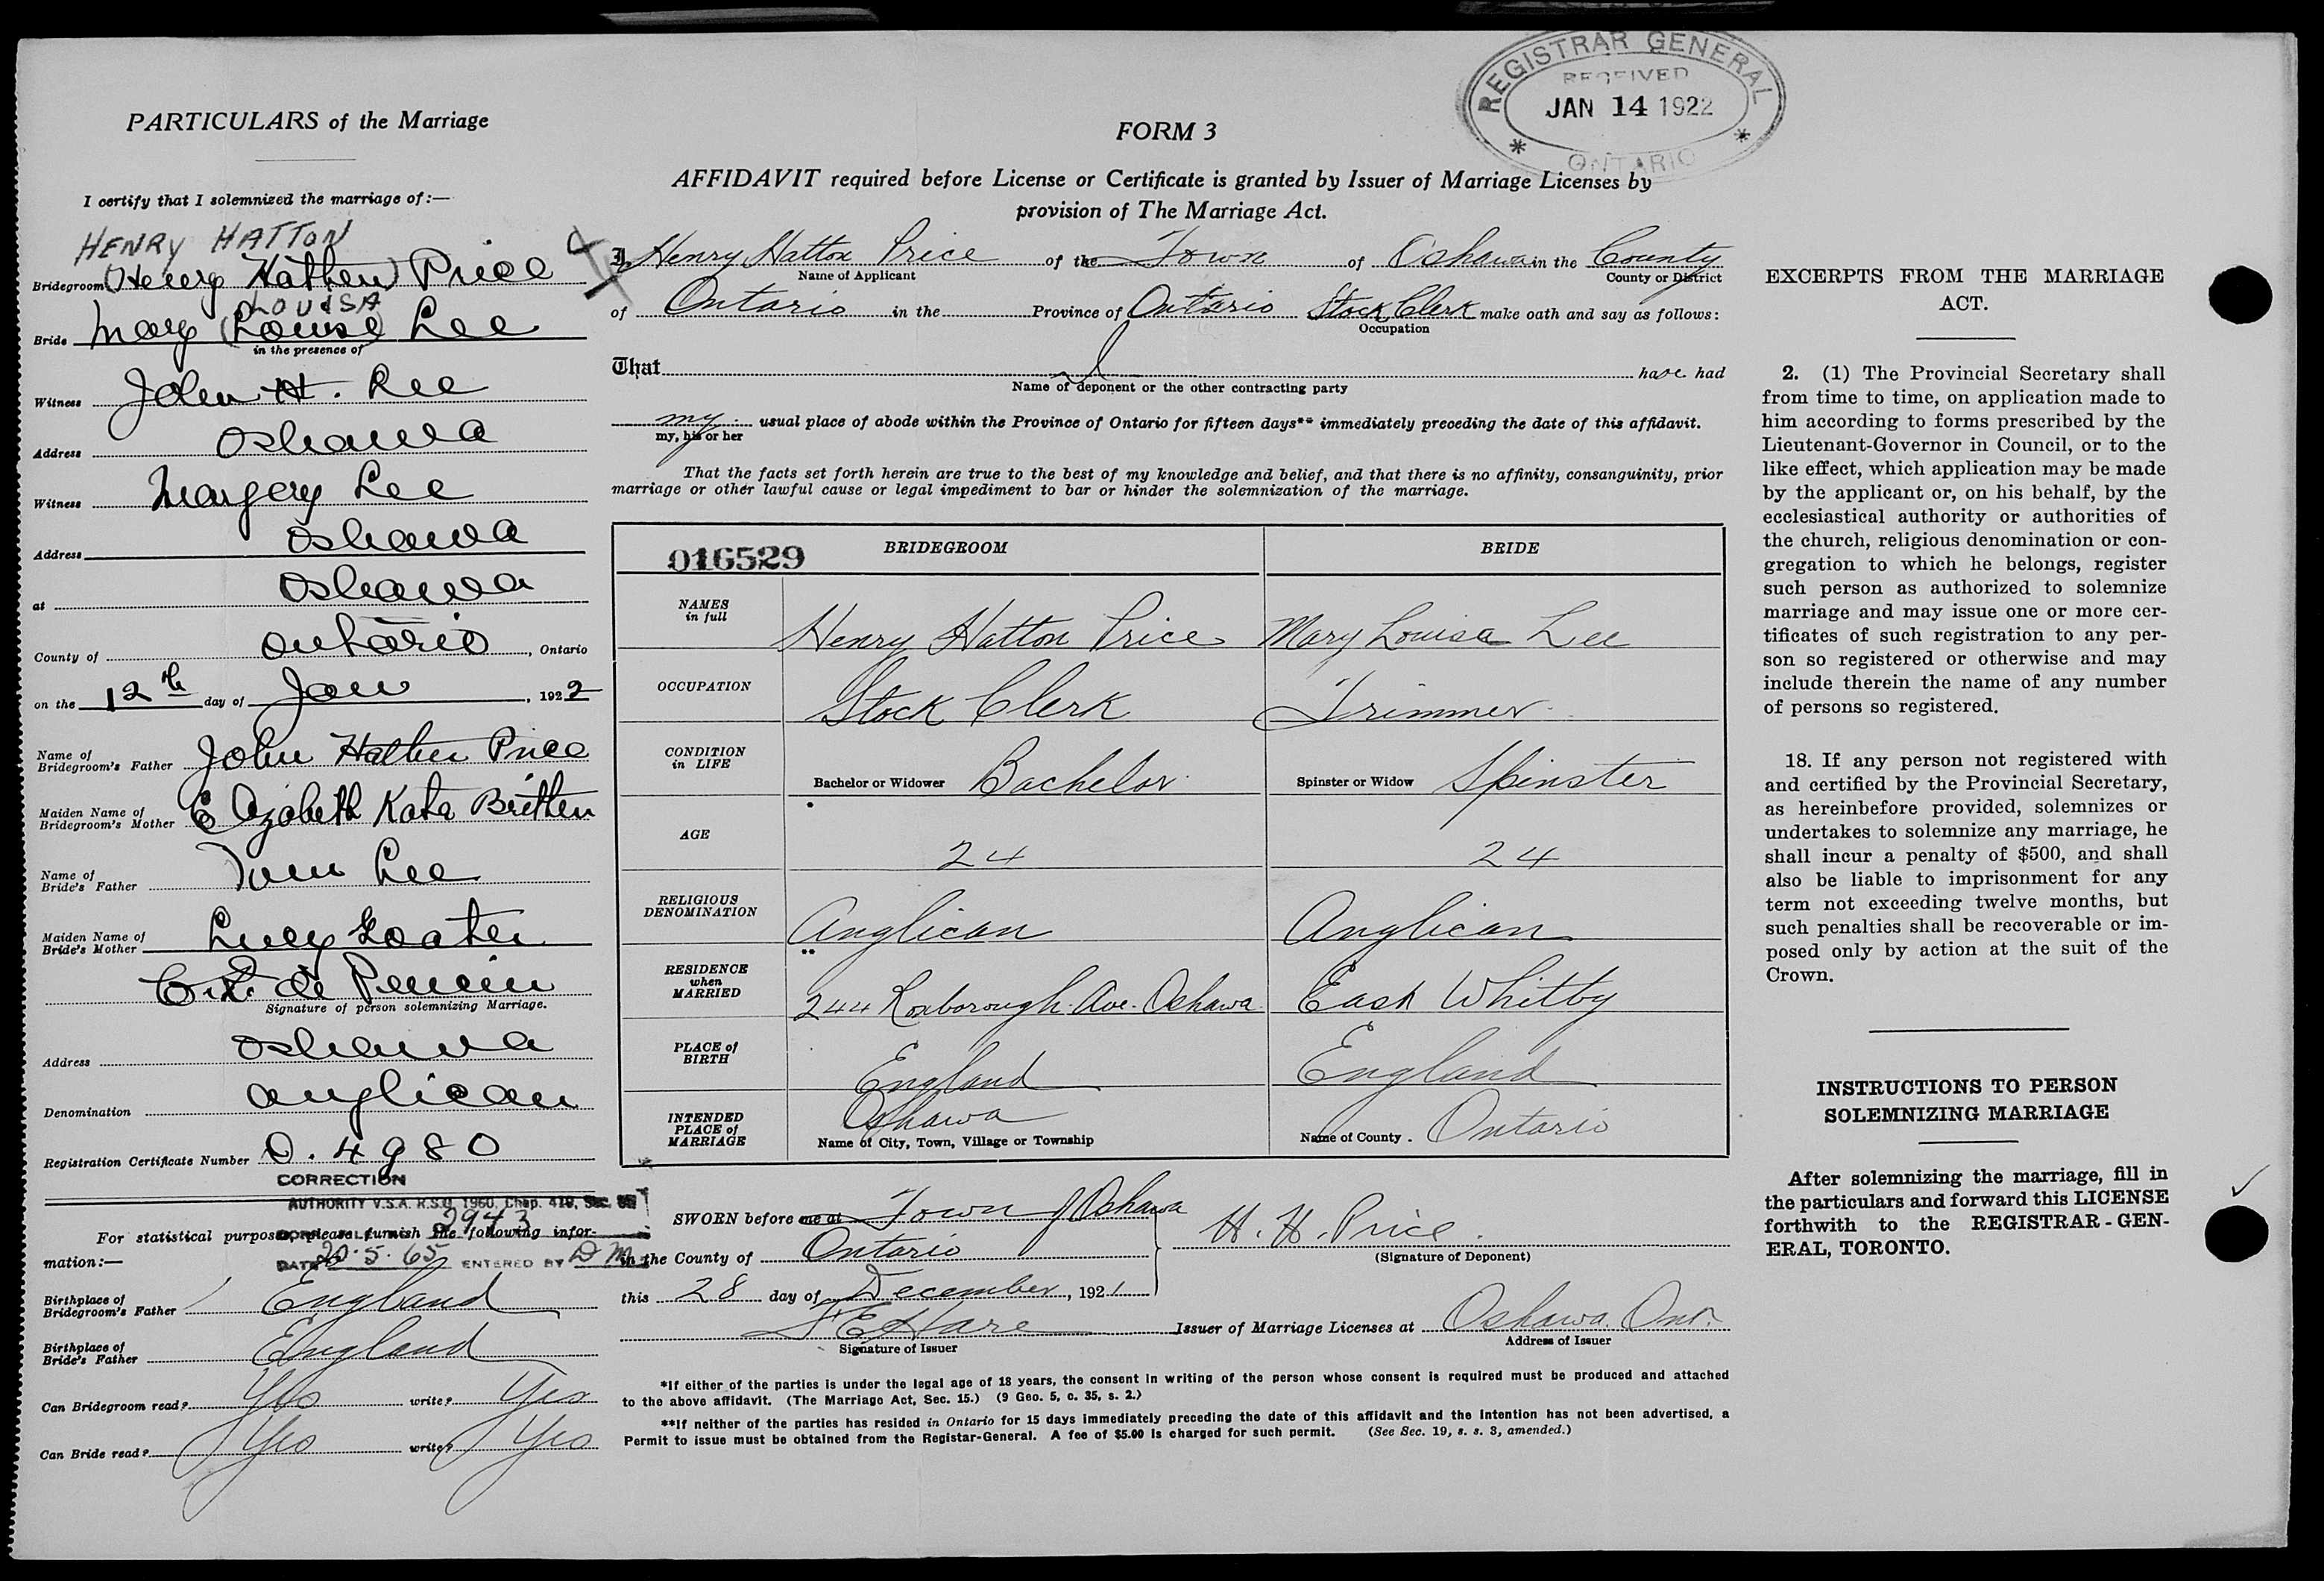 REGISTRAR GENERAL
RECEIVED
JAN 14 1922
ONTARIO
PARTICULARS of the Marriage
I certify that I solemnized the marriage of:—
HENRY HATTON
Bridegroom (Henry Hathen) Price
LOUISA
Bride Mary (Louise) Lee
in the presence of
Witness John H. Lee
Address Oshawa
Witness Margery Lee
Address Oshawa
at Oshawa
County of Ontario, Ontario
on the 12th day of Jan, 1922
Name of
Bridegroom's Father John Hathen Price
Maiden Name of
Bridegroom's Mother Elizabeth Kate Britten
Name of
Bride's Father Tom Lee
Maiden Name of
Bride's Mother Lucy
Signature of person solemnizing Marriage.
Address Oshawa
Denomination Anglican
Registration Certificate Number D. 4980
CORRECTION
AUTHORITY V.S.A. R.S.O. 1960, Chap. 419, Sec.
2943
For statistical purposes, please furnish the following infor-
mation:—
DATE 20.5.65 ENTERED BY D M
Birthplace of
Bridegroom's Father England
Birthplace of
Bride's Father England
Can Bridegroom read? Yes write? Yes
Can Bride read? Yes write? Yes
FORM 3
AFFIDAVIT required before License or Certificate is granted by Issuer of Marriage Licenses by
provision of The Marriage Act.
I, Henry Hatton Price of the Town of Oshawa in the County
Name of Applicant County or District
of Ontario in the Province of Ontario Stock Clerk make oath and say as follows:
Occupation
That I have had
Name of deponent or the other contracting party
my usual place of abode within the Province of Ontario for fifteen days** immediately preceding the date of this affidavit.
my, his or her
That the facts set forth herein are true to the best of my knowledge and belief, and that there is no affinity, consanguinity, prior
marriage or other lawful cause or legal impediment to bar or hinder the solemnization of the marriage.
016529 BRIDEGROOM BRIDE
NAMES
in full Henry Hatton Price Mary Louisa Lee
OCCUPATION Stock Clerk Trimmer
CONDITION
in LIFE Bachelor or Widower Bachelor Spinster or Widow Spinster
AGE 24 24
RELIGIOUS
DENOMINATION Anglican Anglican
RESIDENCE
when
MARRIED 244 Roxborough Ave. Oshawa East Whitby
PLACE of
BIRTH England England
INTENDED
PLACE of
MARRIAGE Oshawa Ontario
Name of City, Town, Village or Township Name of County
SWORN before me at Town of Oshawa H. H. Price
(Signature of Deponent)
in the County of Ontario
this 28 day of December, 1921
Hare Issuer of Marriage Licenses at Oshawa. Ont.
Signature of Issuer Address of Issuer
*If either of the parties is under the legal age of 18 years, the consent in writing of the person whose consent is required must be produced and attached
to the above affidavit. (The Marriage Act, Sec. 15.) (9 Geo. 5, c. 35, s. 2.)
**If neither of the parties has resided in Ontario for 15 days immediately preceding the date of this affidavit and the intention has not been advertised, a
Permit to issue must be obtained from the Registar-General. A fee of $5.00 is charged for such permit. (See Sec. 19, s. s. 3, amended.)
EXCERPTS FROM THE MARRIAGE
ACT.
2. (1) The Provincial Secretary shall
from time to time, on application made to
him according to forms prescribed by the
Lieutenant-Governor in Council, or to the
like effect, which application may be made
by the applicant or, on his behalf, by the
ecclesiastical authority or authorities of
the church, religious denomination or con-
gregation to which he belongs, register
such person as authorized to solemnize
marriage and may issue one or more cer-
tificates of such registration to any per-
son so registered or otherwise and may
include therein the name of any number
of persons so registered.
18. If any person not registered with
and certified by the Provincial Secretary,
as hereinbefore provided, solemnizes or
undertakes to solemnize any marriage, he
shall incur a penalty of $500, and shall
also be liable to imprisonment for any
term not exceeding twelve months, but
such penalties shall be recoverable or im-
posed only by action at the suit of the
Crown.
INSTRUCTIONS TO PERSON
SOLEMNIZING MARRIAGE
After solemnizing the marriage, fill in
the particulars and forward this LICENSE
forthwith to the REGISTRAR-GEN-
ERAL, TORONTO.